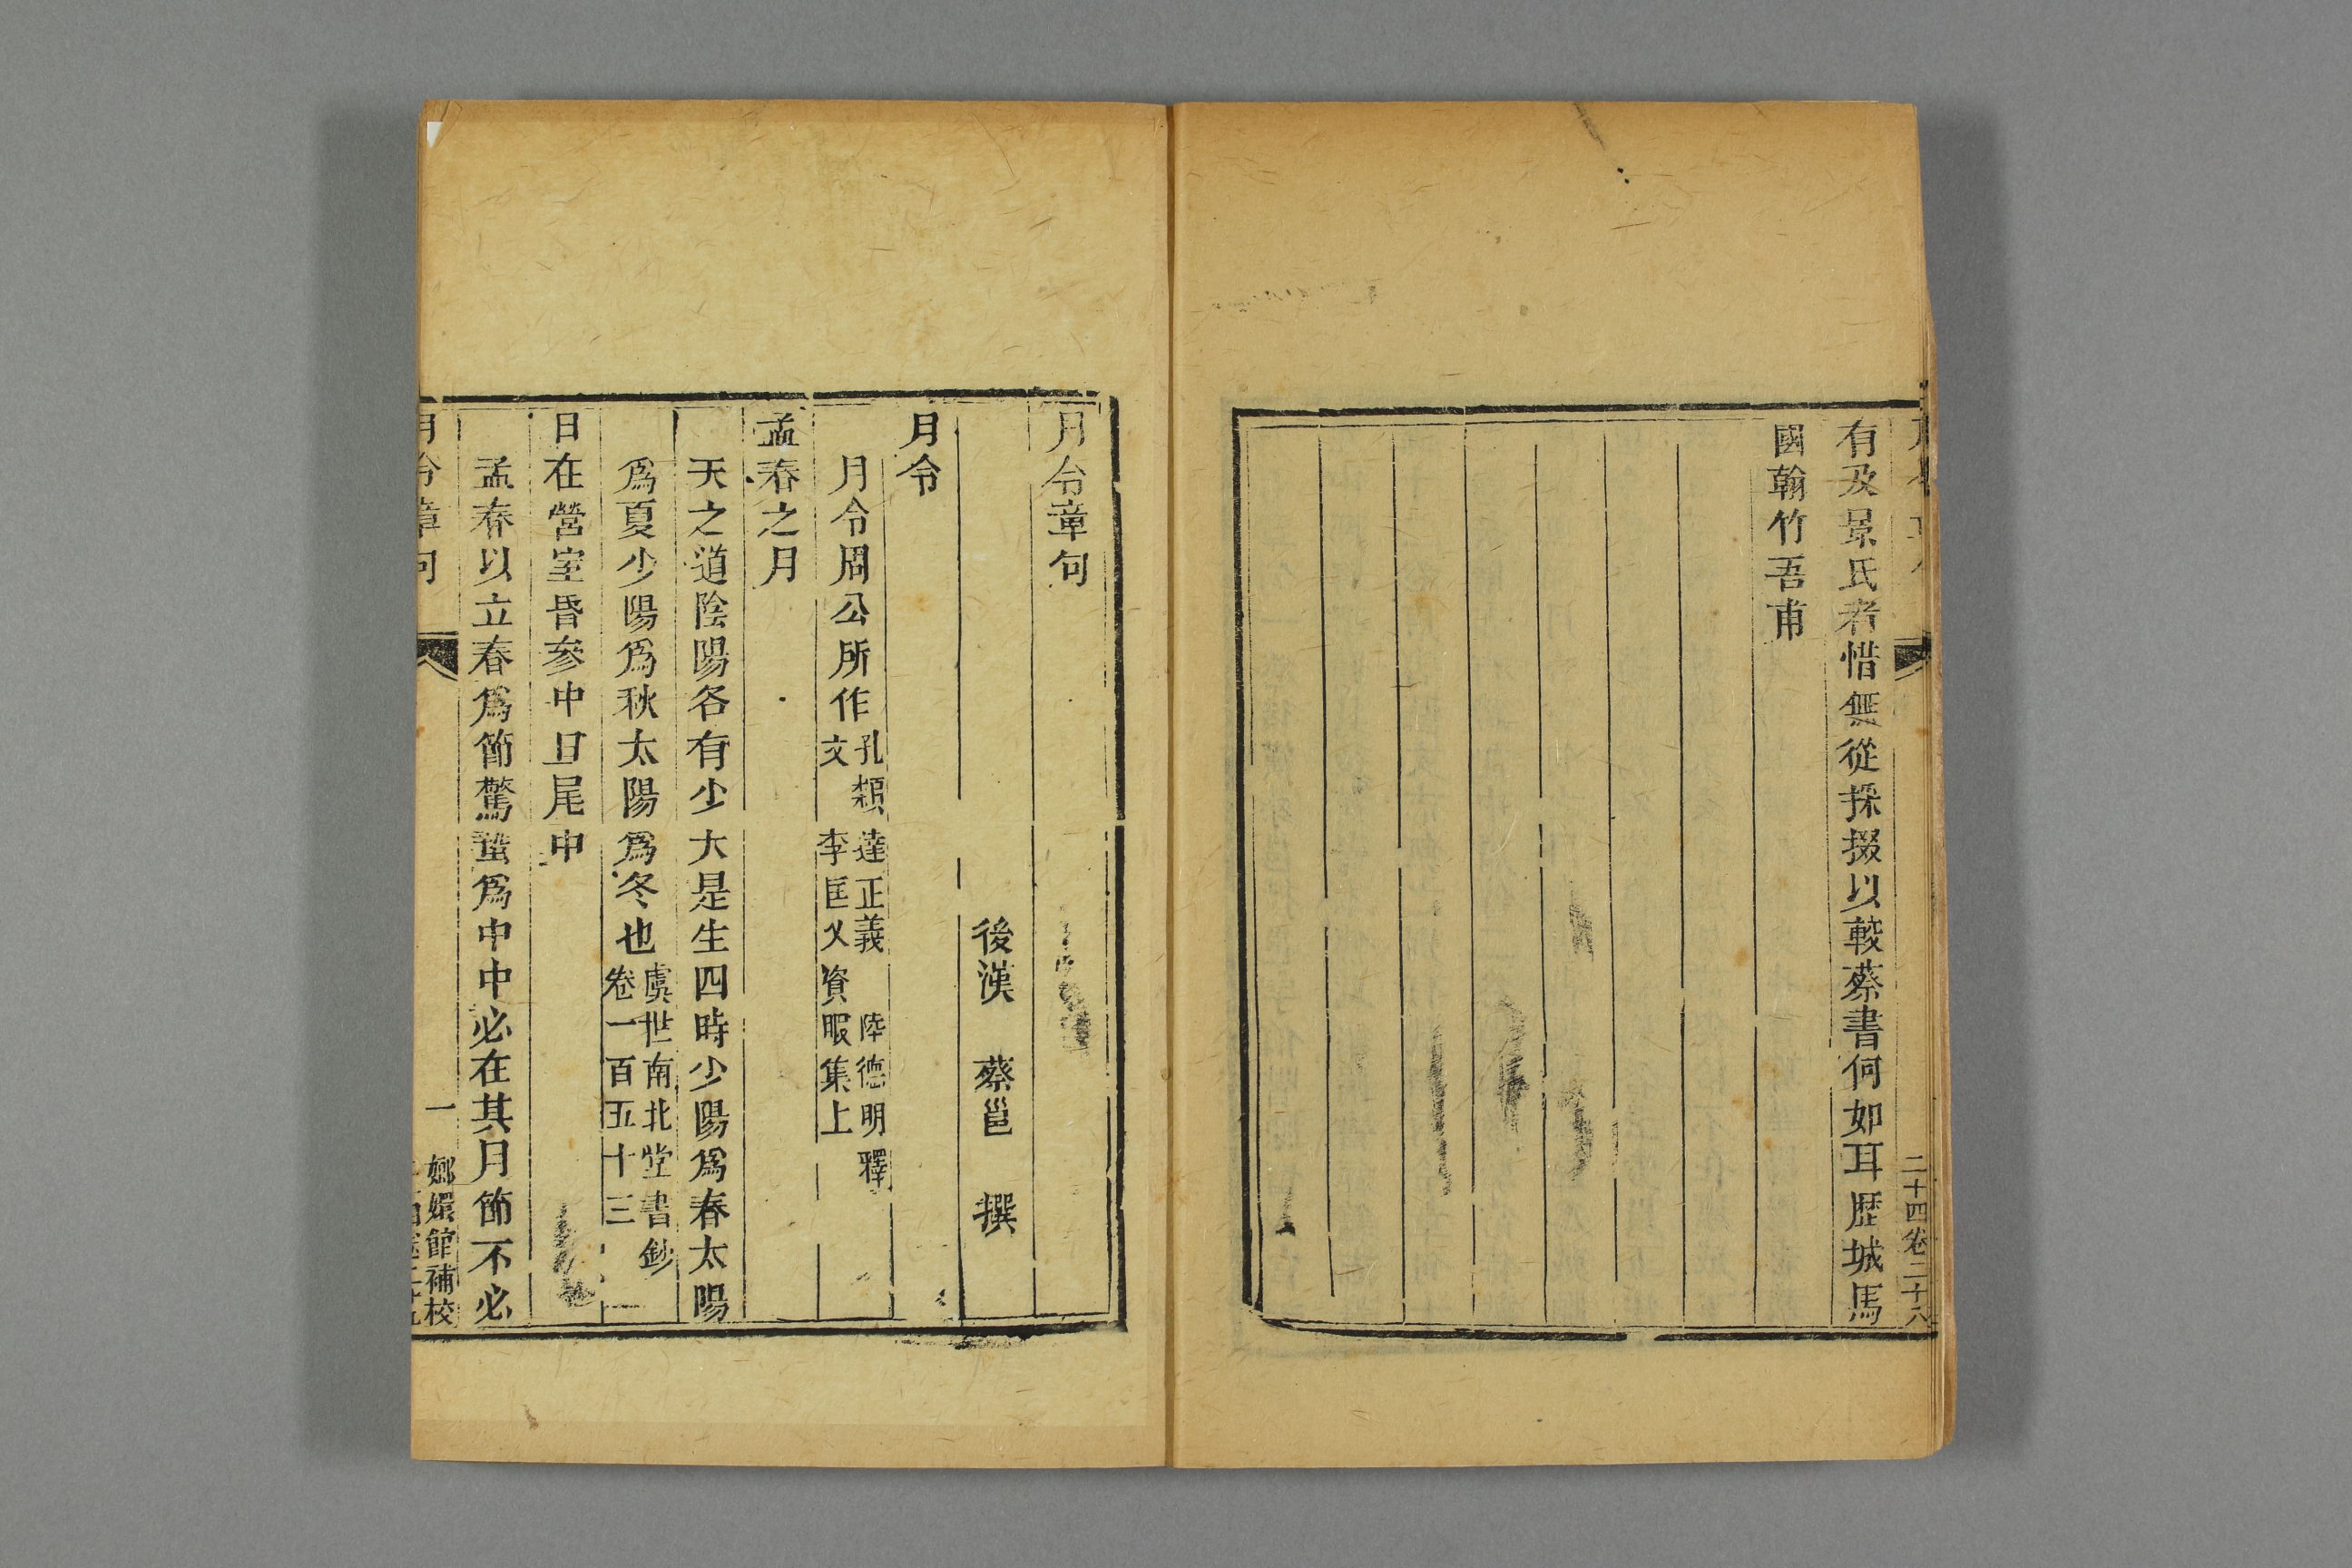 有及景氏者惜無從採掇以較蔡書何如耳歷城馬
國翰竹吾甫
二十四卷二十八
月令章句
後漢 蔡邕 撰
月令
月令周公所作孔頴達正義 陸德明釋
文 李匡乂資暇集上
孟春之月
天之道陰陽各有少大是生四時少陽爲春太陽
爲夏少陽爲秋太陽爲冬也虞世南北堂書鈔
卷一百五十三
日在營室昏参中旦尾中
孟春以立春爲節驚蟄爲中中必在其月節不必
月令章句
一
嫏嬛館補校